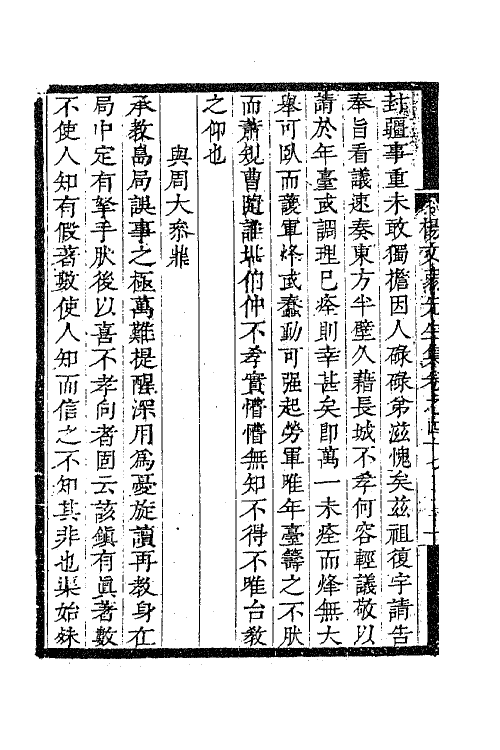 封疆事重未敢獨擔因人碌碌弟滋愧矣茲祖復宇請告
奉旨看議速奏東方半壁久藉長城不孝何容輕議敬以
請於年臺或調理已痊則幸甚矣卽萬一未痊而烽無大
舉可臥而護軍烽或蠢動可强起勞軍唯年臺籌之不肰
而蕭規曹隨誰堪伯仲不孝實懵懵無知不得不唯台教
之仰也
與周大叅鼎
承教島局誤事之極萬難提醒深用爲憂旋讀再教身在
局中定有拏手肰後以喜不孝向者固云該鎮有眞著數
不使人知有假著數使人知而信之不知其非也渠始妹
楊文弱先生集卷之四十